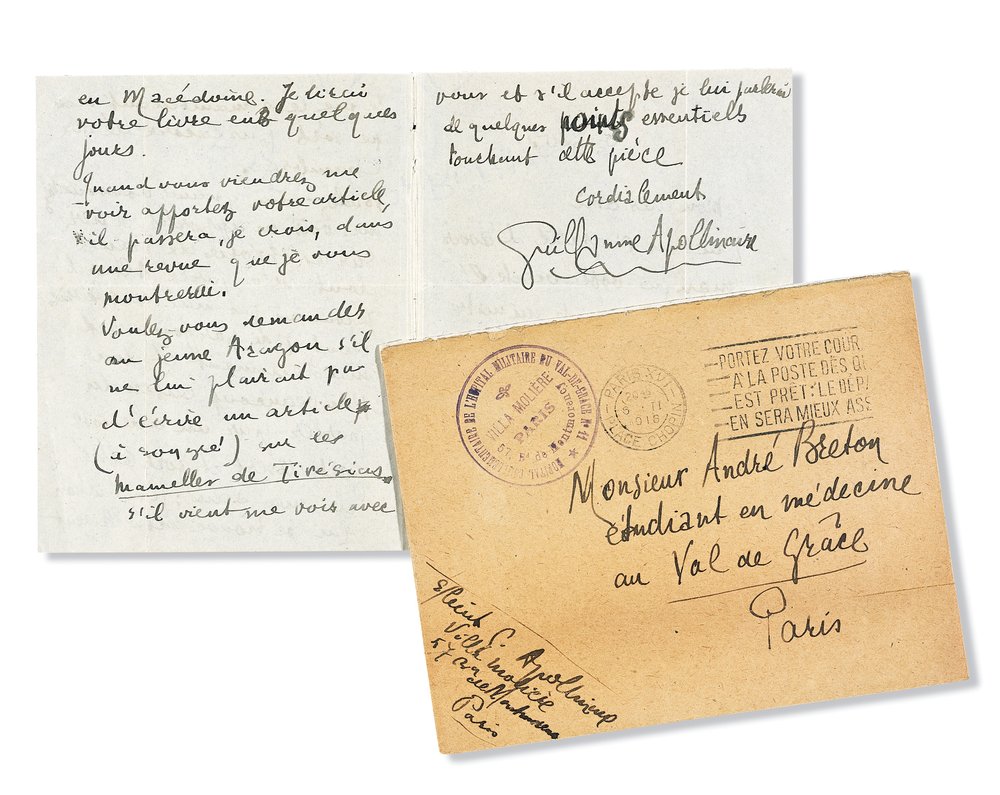 en Macédoine. Je lirai
votre livre en quelques
jours.
Quand vous viendrez me
voir apportez votre article,
il passera, je crois, dans
une revue que je vous
montrerai.
Voulez-vous demander
au jeune Aragon s'il
ne lui plairait pas
d'écrire un article
(à son gré) sur les
Mamelles de Tirésias
s'il vient me voir avec
vous et s'il accepte je lui parlerai
de quelques points essentiels
touchant cette pièce
cordialement
Guillaume Apollinaire
HOPITAL MILITAIRE DU VAL-DE-GRACE N° 11
VILLA MOLIÈRE
57, Bd de Montmorency
PARIS
PARIS XVI
PLACE CHOPIN
PORTEZ VOTRE COUR
A LA POSTE DÈS Q
EST PRÊT: LE DÉPA
EN SERA MIEUX ASS
Monsieur André Breton
étudiant en médecine
au Val de Grâce
Paris
G. Apollinaire
Villa molière
57
de Montmorency
Paris